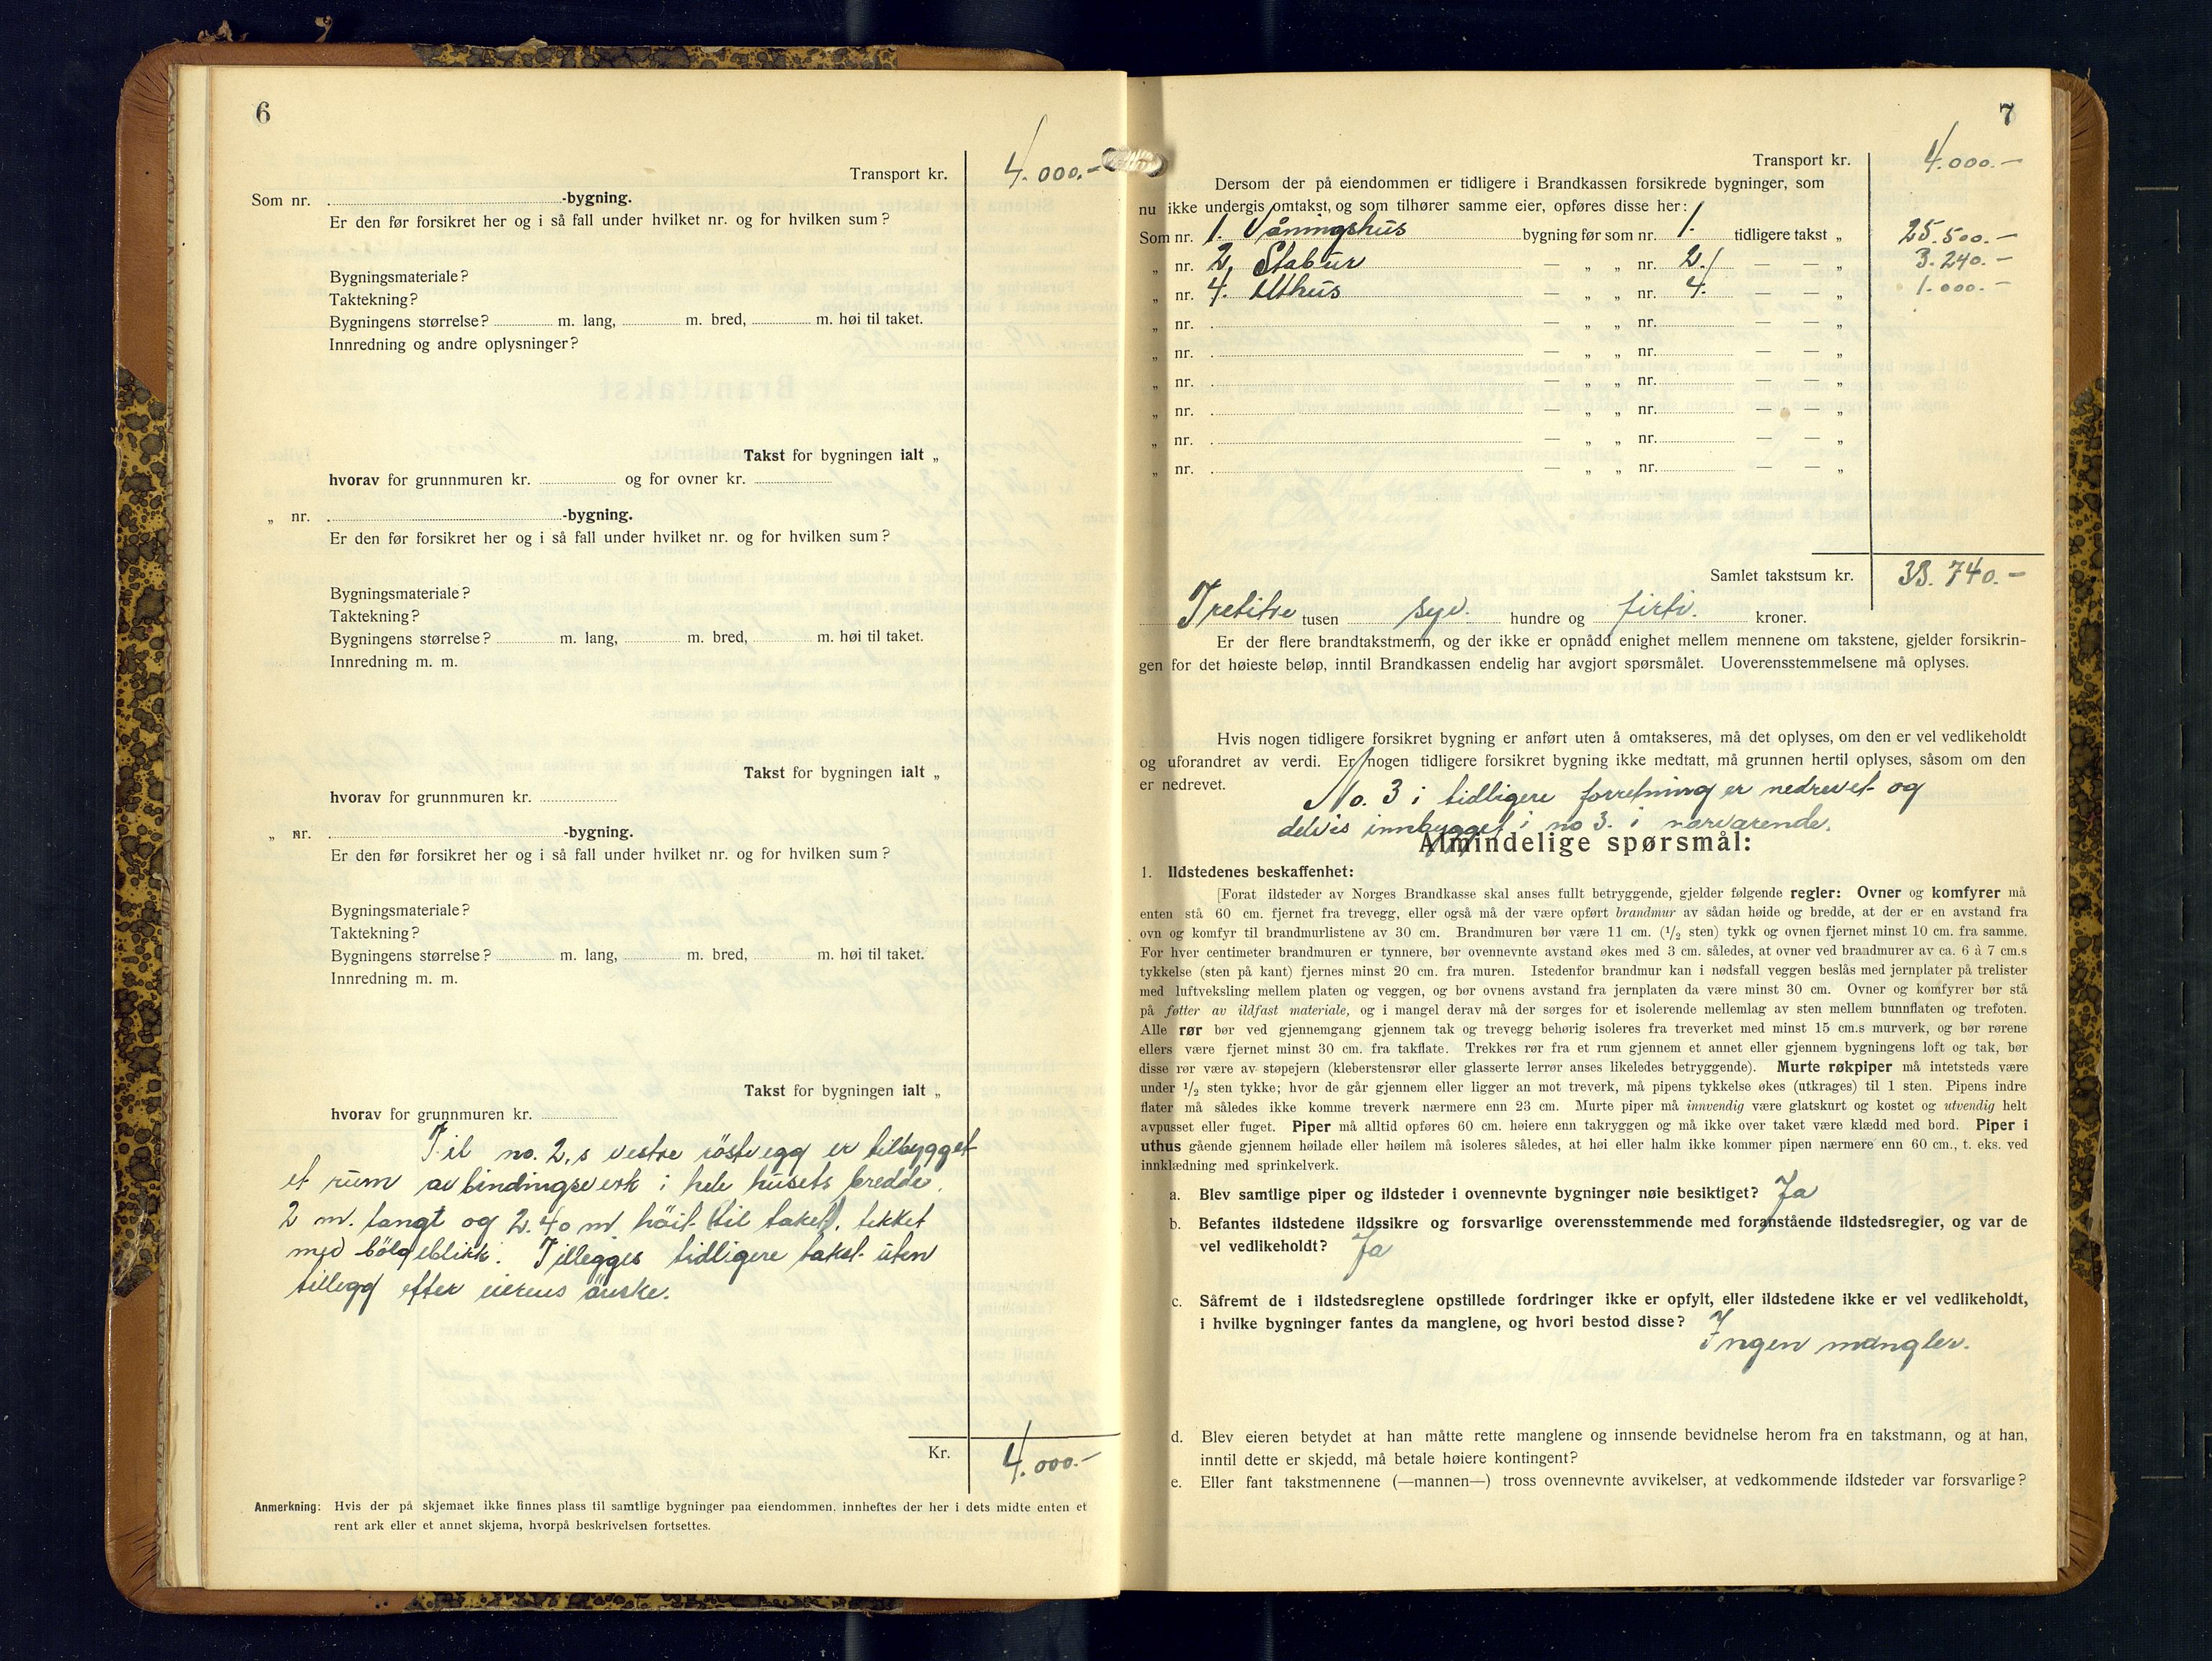 6
Transport kr. 4.000.-
Som nr. -bygning.
Er den før forsikret her og i så fall under hvilket nr. og for hvilken sum?
Bygningsmateriale?
Taktekning?
Bygningens størrelse? m. lang, m. bred, m. høi til taket.
Innredning og andre oplysninger?
Takst for bygningen ialt „
hvorav for grunnmuren kr. og for ovner kr.
„ nr. -bygning.
Er den før forsikret her og i så fall under hvilket nr. og for hvilken sum?
Bygningsmateriale?
Taktekning?
Bygningens størrelse? m. lang, m. bred, m. høi til taket.
Innredning m. m.
Takst for bygningen ialt „
hvorav for grunnmuren kr.
„ nr. -bygning.
Er den før forsikret her og i så fall under hvilket nr. og for hvilken sum?
Bygningsmateriale?
Taktekning?
Bygningens størrelse? m. lang, m. bred, m. høi til taket.
Innredning m. m.
Takst for bygningen ialt „
hvorav for grunnmuren kr.
Til no. 2,s vestre röstvegg er tilbygget
et rum av bindingsverk i hele husets bredde,
2 m. langt og 2.40 m. höit (til taket), tekket
med bölgeblikk. Tillegges tidligere takst uten
tillegg efter eierens önske.
Kr. 4.000.-
Anmerkning: Hvis der på skjemaet ikke finnes plass til samtlige bygninger paa eiendommen, innheftes der her i dets midte enten et
rent ark eller et annet skjema, hvorpå beskrivelsen fortsettes.
7
Transport kr. 4.000.-
Dersom der på eiendommen er tidligere i Brandkassen forsikrede bygninger, som
nu ikke undergis omtakst, og som tilhører samme eier, opføres disse her:
Som nr. 1. Våningshus bygning før som nr. 1. tidligere takst „ 25.500.-
„ nr. 2. Stabur — „ „ nr. 2. — — „ 3.240.-
„ nr. 4. Uthus — „ „ nr. 4. — — „ 1.000.-
„ nr. — „ „ nr. — — „
„ nr. — „ „ nr. — — „
„ nr. — „ „ nr. — — „
„ nr. — „ „ nr. — — „
„ nr. — „ „ nr. — — „
„ nr. — „ „ nr. — — „
Samlet takstsum kr. 33.740.-
Tretitre tusen syv. hundre og firti. kroner.
Er der flere brandtakstmenn, og der ikke er opnådd enighet mellem mennene om takstene, gjelder forsikrin-
gen for det høieste beløp, inntil Brandkassen endelig har avgjort spørsmålet. Uoverensstemmelsene må oplyses.
Hvis nogen tidligere forsikret bygning er anført uten å omtakseres, må det oplyses, om den er vel vedlikeholdt
og uforandret av verdi. Er nogen tidligere forsikret bygning ikke medtatt, må grunnen hertil oplyses, såsom om den
er nedrevet. No. 3 i tidligere forretning er nedrevet og
delvis innbygget i no 3. i nærværende.
Almindelige spørsmål:
1. Ildstedenes beskaffenhet:
[Forat ildsteder av Norges Brandkasse skal anses fullt betryggende, gjelder følgende regler: Ovner og komfyrer må
enten stå 60 cm. fjernet fra trevegg, eller også må der være opført brandmur av sådan høide og bredde, at der er en avstand fra
ovn og komfyr til brandmurlistene av 30 cm. Brandmuren bør være 11 cm. (1/2 sten) tykk og ovnen fjernet minst 10 cm. fra samme.
For hver centimeter brandmuren er tynnere, bør ovennevnte avstand økes med 3 cm. således, at ovner ved brandmurer av ca. 6 à 7 cm.s
tykkelse (sten på kant) fjernes minst 20 cm. fra muren. Istedenfor brandmur kan i nødsfall veggen beslås med jernplater på trelister
med luftveksling mellem platen og veggen, og bør ovnens avstand fra jernplaten da være minst 30 cm. Ovner og komfyrer bør stå
på føtter av ildfast materiale, og i mangel derav må der sørges for et isolerende mellemlag av sten mellem bunnflaten og trefoten.
Alle rør bør ved gjennemgang gjennem tak og trevegg behørig isoleres fra treverket med minst 15 cm.s murverk, og bør rørene
ellers være fjernet minst 30 cm. fra takflate. Trekkes rør fra et rum gjennem et annet eller gjennem bygningens loft og tak, bør
disse rør være av støpejern (kleberstensrør eller glasserte lerrør anses likeledes betryggende). Murte røkpiper må intetsteds være
under 1/2 sten tykke; hvor de går gjennem eller ligger an mot treverk, må pipens tykkelse økes (utkrages) til 1 sten. Pipens indre
flater må således ikke komme treverk nærmere enn 23 cm. Murte piper må innvendig være glatskurt og kostet og utvendig helt
avpusset eller fuget. Piper må alltid opføres 60 cm. høiere enn takryggen og må ikke over taket være klædd med bord. Piper i
uthus gående gjennem høilade eller høilem må isoleres således, at høi eller halm ikke kommer pipen nærmere enn 60 cm., t. eks. ved
innklædning med sprinkelverk.
a. Blev samtlige piper og ildsteder i ovennevnte bygninger nøie besiktiget? Ja
b. Befantes ildstedene ildssikre og forsvarlige overensstemmende med foranstående ildstedsregler, og var de
vel vedlikeholdt? Ja
c. Såfremt de i ildstedsreglene opstillede fordringer ikke er opfylt, eller ildstedene ikke er vel vedlikeholdt,
i hvilke bygninger fantes da manglene, og hvori bestod disse? Ingen mangler.
d. Blev eieren betydet at han måtte rette manglene og innsende bevidnelse herom fra en takstmann, og at han,
inntil dette er skjedd, må betale høiere kontingent?
e. Eller fant takstmennene (—mannen—) tross ovennevnte avvikelser, at vedkommende ildsteder var forsvarlige?